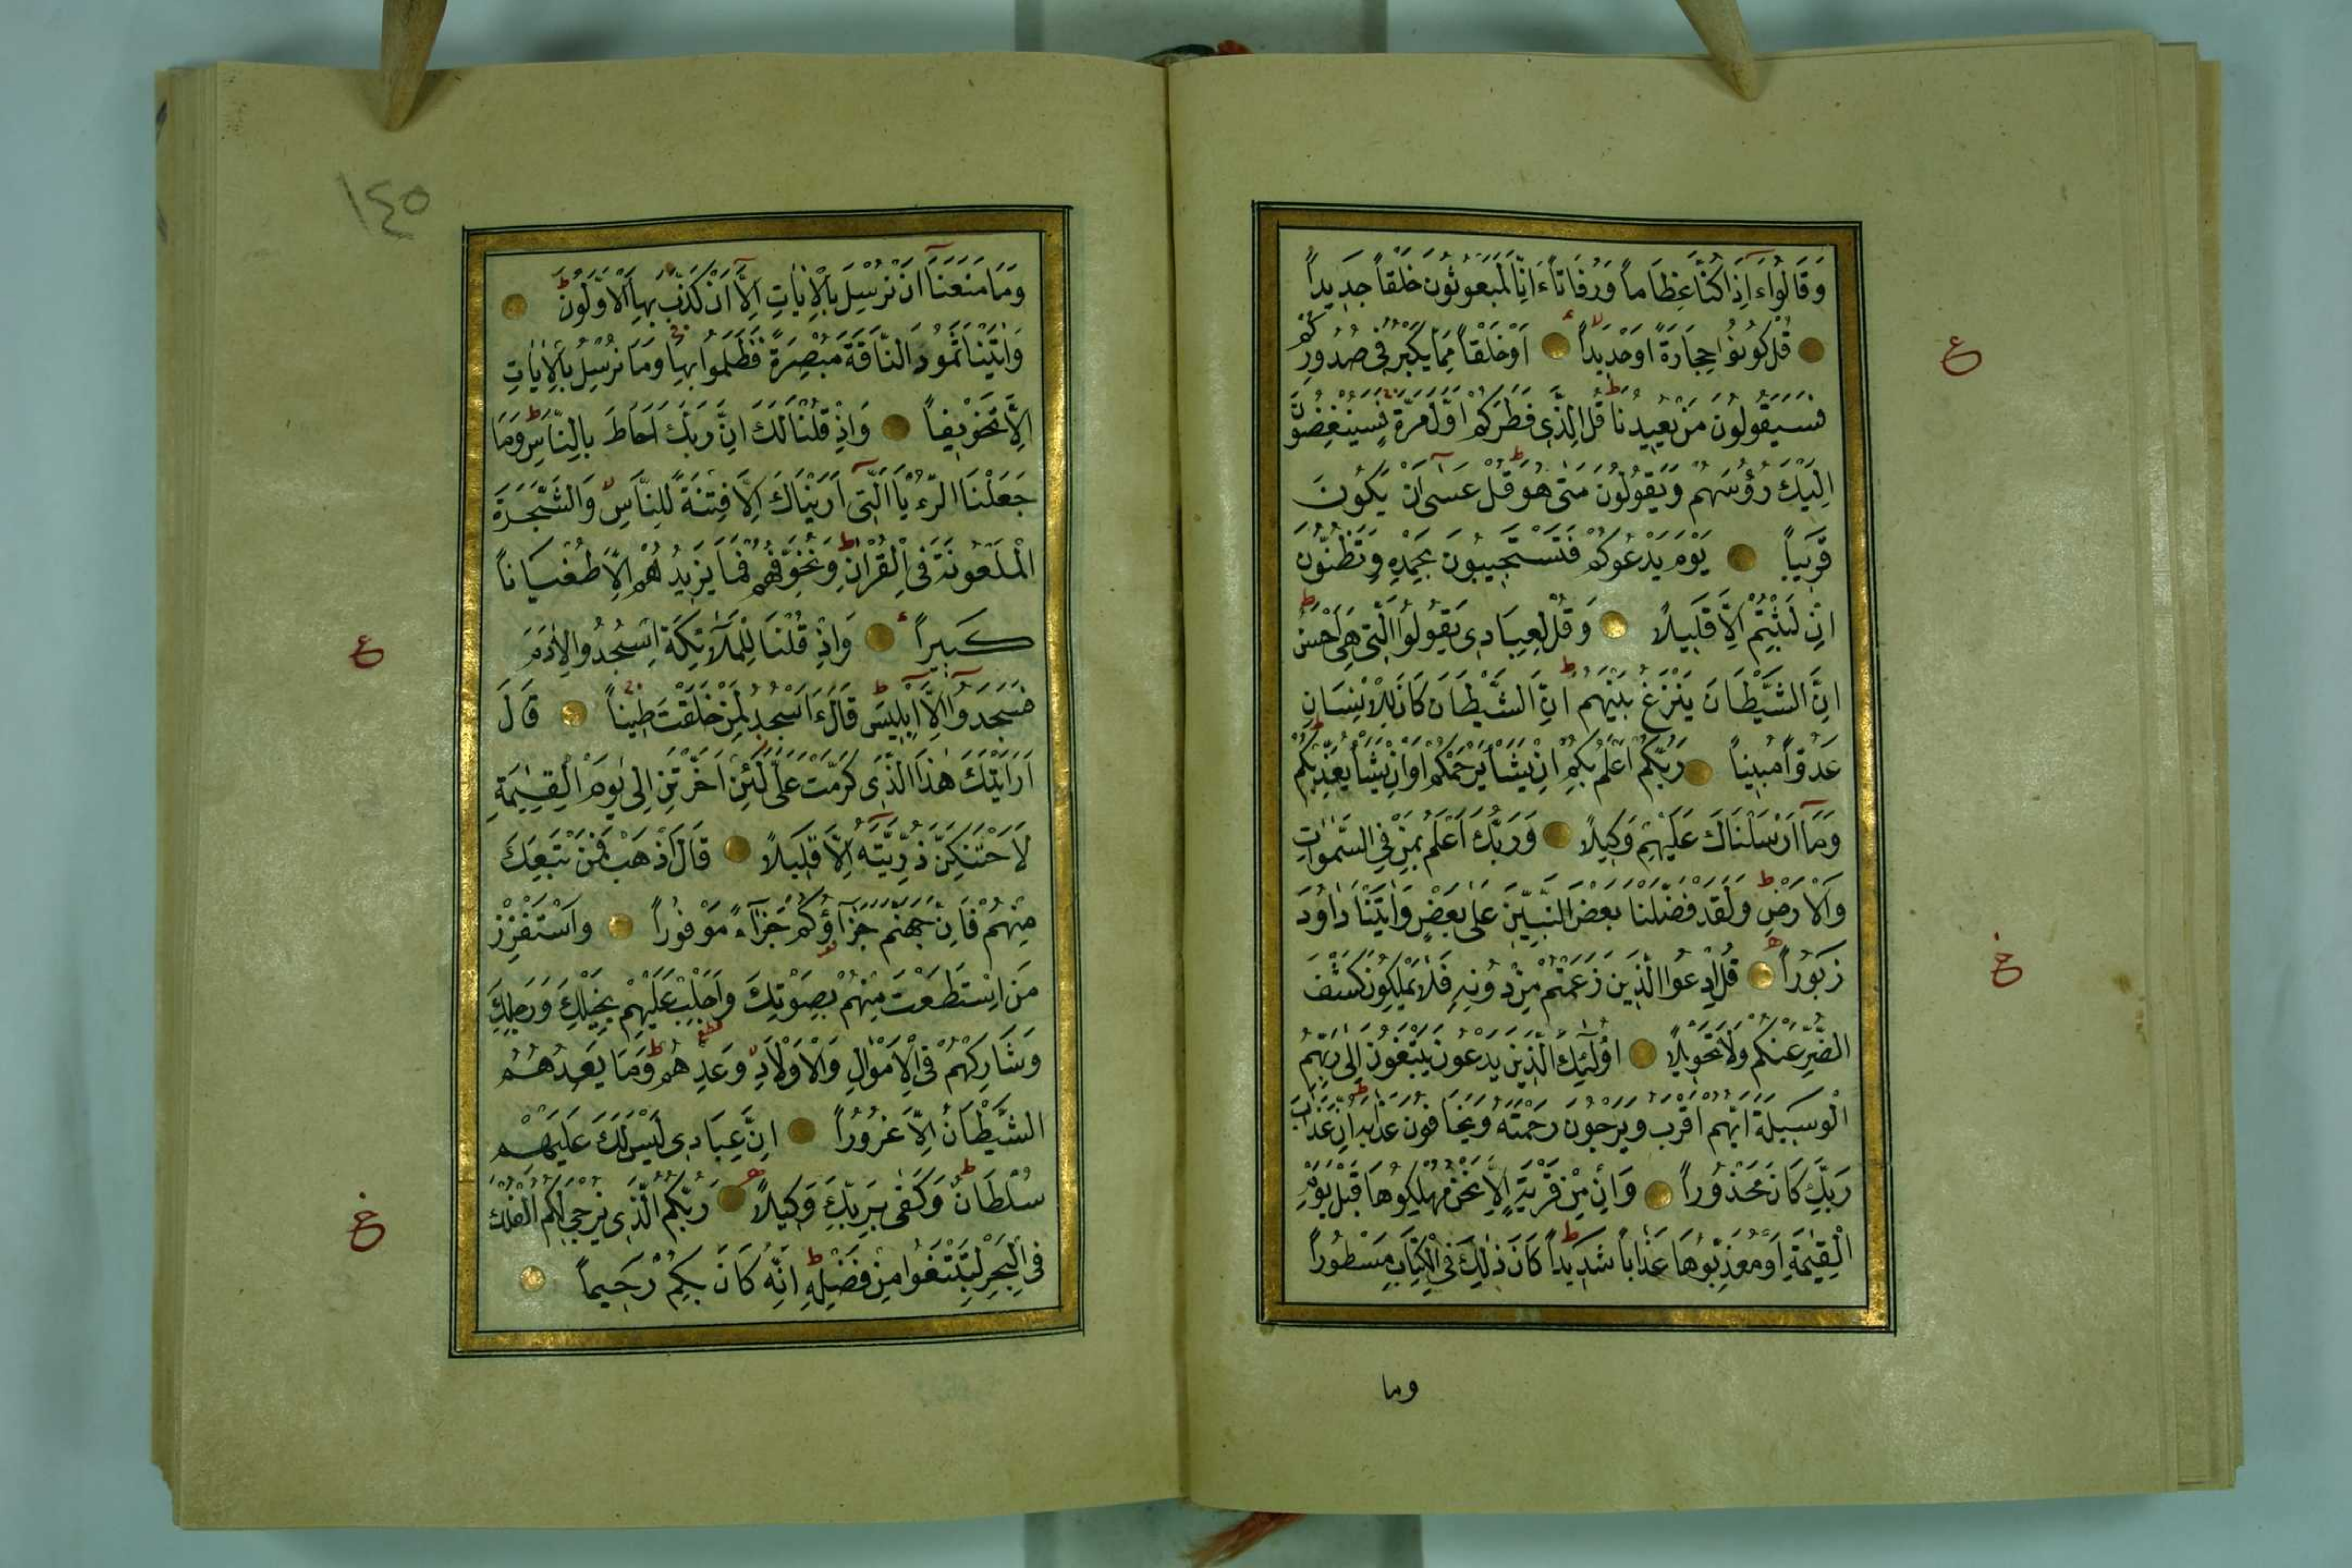 وَقَالُوا ءَاِذَا كُنَّا عِظَاماً وَرُفَاتاً ءَاِنَّا لَمَبْعُوثُونَ خَلْقاً جَدِيداً
قُلْ كُونُوا حِجَارَةً اَوْ حَدِيداً اَوْ خَلْقاً مِمَّا يَكْبُرُ فِى صُدُورِكُمْ
ع
فَسَيَقُولُونَ مَنْ يُعِيدُنَا قُلِ الَّذِى فَطَرَكُمْ اَوَّلَ مَرَّةٍ فَسَيُنْغِضُونَ
اِلَيْكَ رُؤُسَهُمْ وَيَقُولُونَ مَتٰى هُوَ قُلْ عَسٰٓى اَنْ يَكُونَ
قَرِيباً يَوْمَ يَدْعُوكُمْ فَتَسْتَجِيبُونَ بِحَمْدِهِ وَتَظُنُّونَ
اِنْ لَبِثْتُمْ اِلَّا قَلِيلاً وَقُلْ لِعِبَادِى يَقُولُوا الَّتِى هِىَ اَحْسَنُ
اِنَّ الشَّيْطَانَ يَنْزَغُ بَيْنَهُمْ اِنَّ الشَّيْطَانَ كَانَ لِلْاِنْسَانِ
عَدُوّاً مُبِيناً رَبُّكُمْ اَعْلَمُ بِكُمْ اِنْ يَشَأْ يَرْحَمْكُمْ اَوْ اِنْ يَشَأْ يُعَذِّبْكُمْ
وَمَٓا اَرْسَلْنَاكَ عَلَيْهِمْ وَكِيلاً وَرَبُّكَ اَعْلَمُ بِمَنْ فِى السَّمٰوَاتِ
وَالْاَرْضِ وَلَقَدْ فَضَّلْنَا بَعْضَ النَّبِيّٖنَ عَلٰى بَعْضٍ وَاٰتَيْنَا دَاوُدَ
زَبُوراً قُلِ ادْعُوا الَّذِينَ زَعَمْتُمْ مِنْ دُونِهِ فَلَا يَمْلِكُونَ كَشْفَ
خ
الضُّرِّ عَنْكُمْ وَلَا تَحْوِيلاً اُولٰٓئِكَ الَّذِينَ يَدْعُونَ يَبْتَغُونَ اِلٰى رَبِّهِمُ
الْوَسِيلَةَ اَيُّهُمْ اَقْرَبُ وَيَرْجُونَ رَحْمَتَهُ وَيَخَافُونَ عَذَابَهُ اِنَّ عَذَابَ
رَبِّكَ كَانَ مَحْذُوراً وَاِنْ مِنْ قَرْيَةٍ اِلَّا نَحْنُ مُهْلِكُوهَا قَبْلَ يَوْمِ
الْقِيٰمَةِ اَوْ مُعَذِّبُوهَا عَذَاباً شَدِيداً كَانَ ذٰلِكَ فِى الْكِتَابِ مَسْطُوراً
وما
١٤٥
وَمَا مَنَعَنَٓا اَنْ نُرْسِلَ بِالْاٰيَاتِ اِلَّٓا اَنْ كَذَّبَ بِهَا الْاَوَّلُونَ
وَاٰتَيْنَا ثَمُودَ النَّاقَةَ مُبْصِرَةً فَظَلَمُوا بِهَا وَمَا نُرْسِلُ بِالْاٰيَاتِ
اِلَّا تَخْوِيفاً وَاِذْ قُلْنَا لَكَ اِنَّ رَبَّكَ اَحَاطَ بِالنَّاسِ وَمَا
جَعَلْنَا الرُّءْيَا الَّتِٓى اَرَيْنَاكَ اِلَّا فِتْنَةً لِلنَّاسِ وَالشَّجَرَةَ
الْمَلْعُونَةَ فِى الْقُرْاٰنِ وَنُخَوِّفُهُمْ فَمَا يَزِيدُهُمْ اِلَّا طُغْيَاناً
كَبِيراً وَاِذْ قُلْنَا لِلْمَلٰٓئِكَةِ اسْجُدُوا لِاٰدَمَ
ع
فَسَجَدُٓوا اِلَّٓا اِبْلِيسَ قَالَ ءَاَسْجُدُ لِمَنْ خَلَقْتَ طِيناً قَالَ
اَرَاَيْتَكَ هٰذَا الَّذِى كَرَّمْتَ عَلَىَّ لَئِنْ اَخَّرْتَنِ اِلٰى يَوْمِ الْقِيٰمَةِ
لَاَحْتَنِكَنَّ ذُرِّيَّتَهُٓ اِلَّا قَلِيلاً قَالَ اذْهَبْ فَمَنْ تَبِعَكَ
مِنْهُمْ فَاِنَّ جَهَنَّمَ جَزَٓاؤُكُمْ جَزَٓاءً مَوْفُوراً وَاسْتَفْزِزْ
مَنِ اسْتَطَعْتَ مِنْهُمْ بِصَوْتِكَ وَاَجْلِبْ عَلَيْهِمْ بِخَيْلِكَ وَرَجِلِكَ
وَشَارِكْهُمْ فِى الْاَمْوَالِ وَالْاَوْلَادِ وَعِدْهُمْ وَمَا يَعِدُهُمُ
الشَّيْطَانُ اِلَّا غُرُوراً اِنَّ عِبَادِى لَيْسَ لَكَ عَلَيْهِمْ
سُلْطَانٌ وَكَفٰى بِرَبِّكَ وَكِيلاً رَبُّكُمُ الَّذِى يُزْجِى لَكُمُ الْفُلْكَ
خ
فِى الْبَحْرِ لِتَبْتَغُوا مِنْ فَضْلِهِ اِنَّهُ كَانَ بِكُمْ رَحِيماً